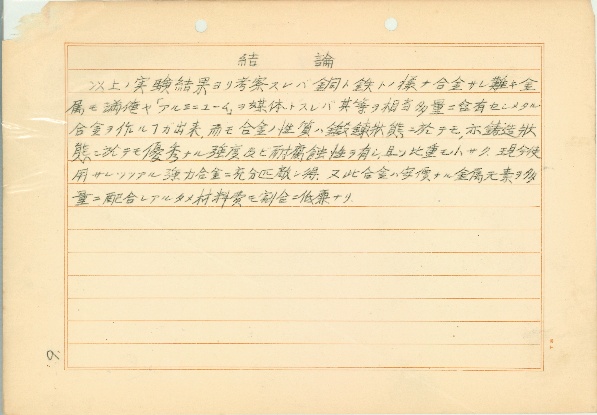 結論
以上ノ実験結果ヨリ考察スレバ銅ト鉄トノ様ナ合金サレ難キ金
属モ満俺ヤ「アルミニューム」ヲ媒体トスレバ其等ヲ相当多量ニ含有セシメタル
合金ヲ作ル丁ガ出来、而モ合金ノ性質ハ鍛錬状態ニ於テモ、亦鋳造状
態ニ於テモ優秀ナル強度及ビ耐腐蝕性ヲ有シ、且ツ比重モ小サク、現今使
用サレツツアル強力合金ニ充分匹敵シ得、又此合金ハ安価ナル金属元素ヲ多
量ニ配合シアルタメ材料費モ割合ニ低廉ナリ
9.